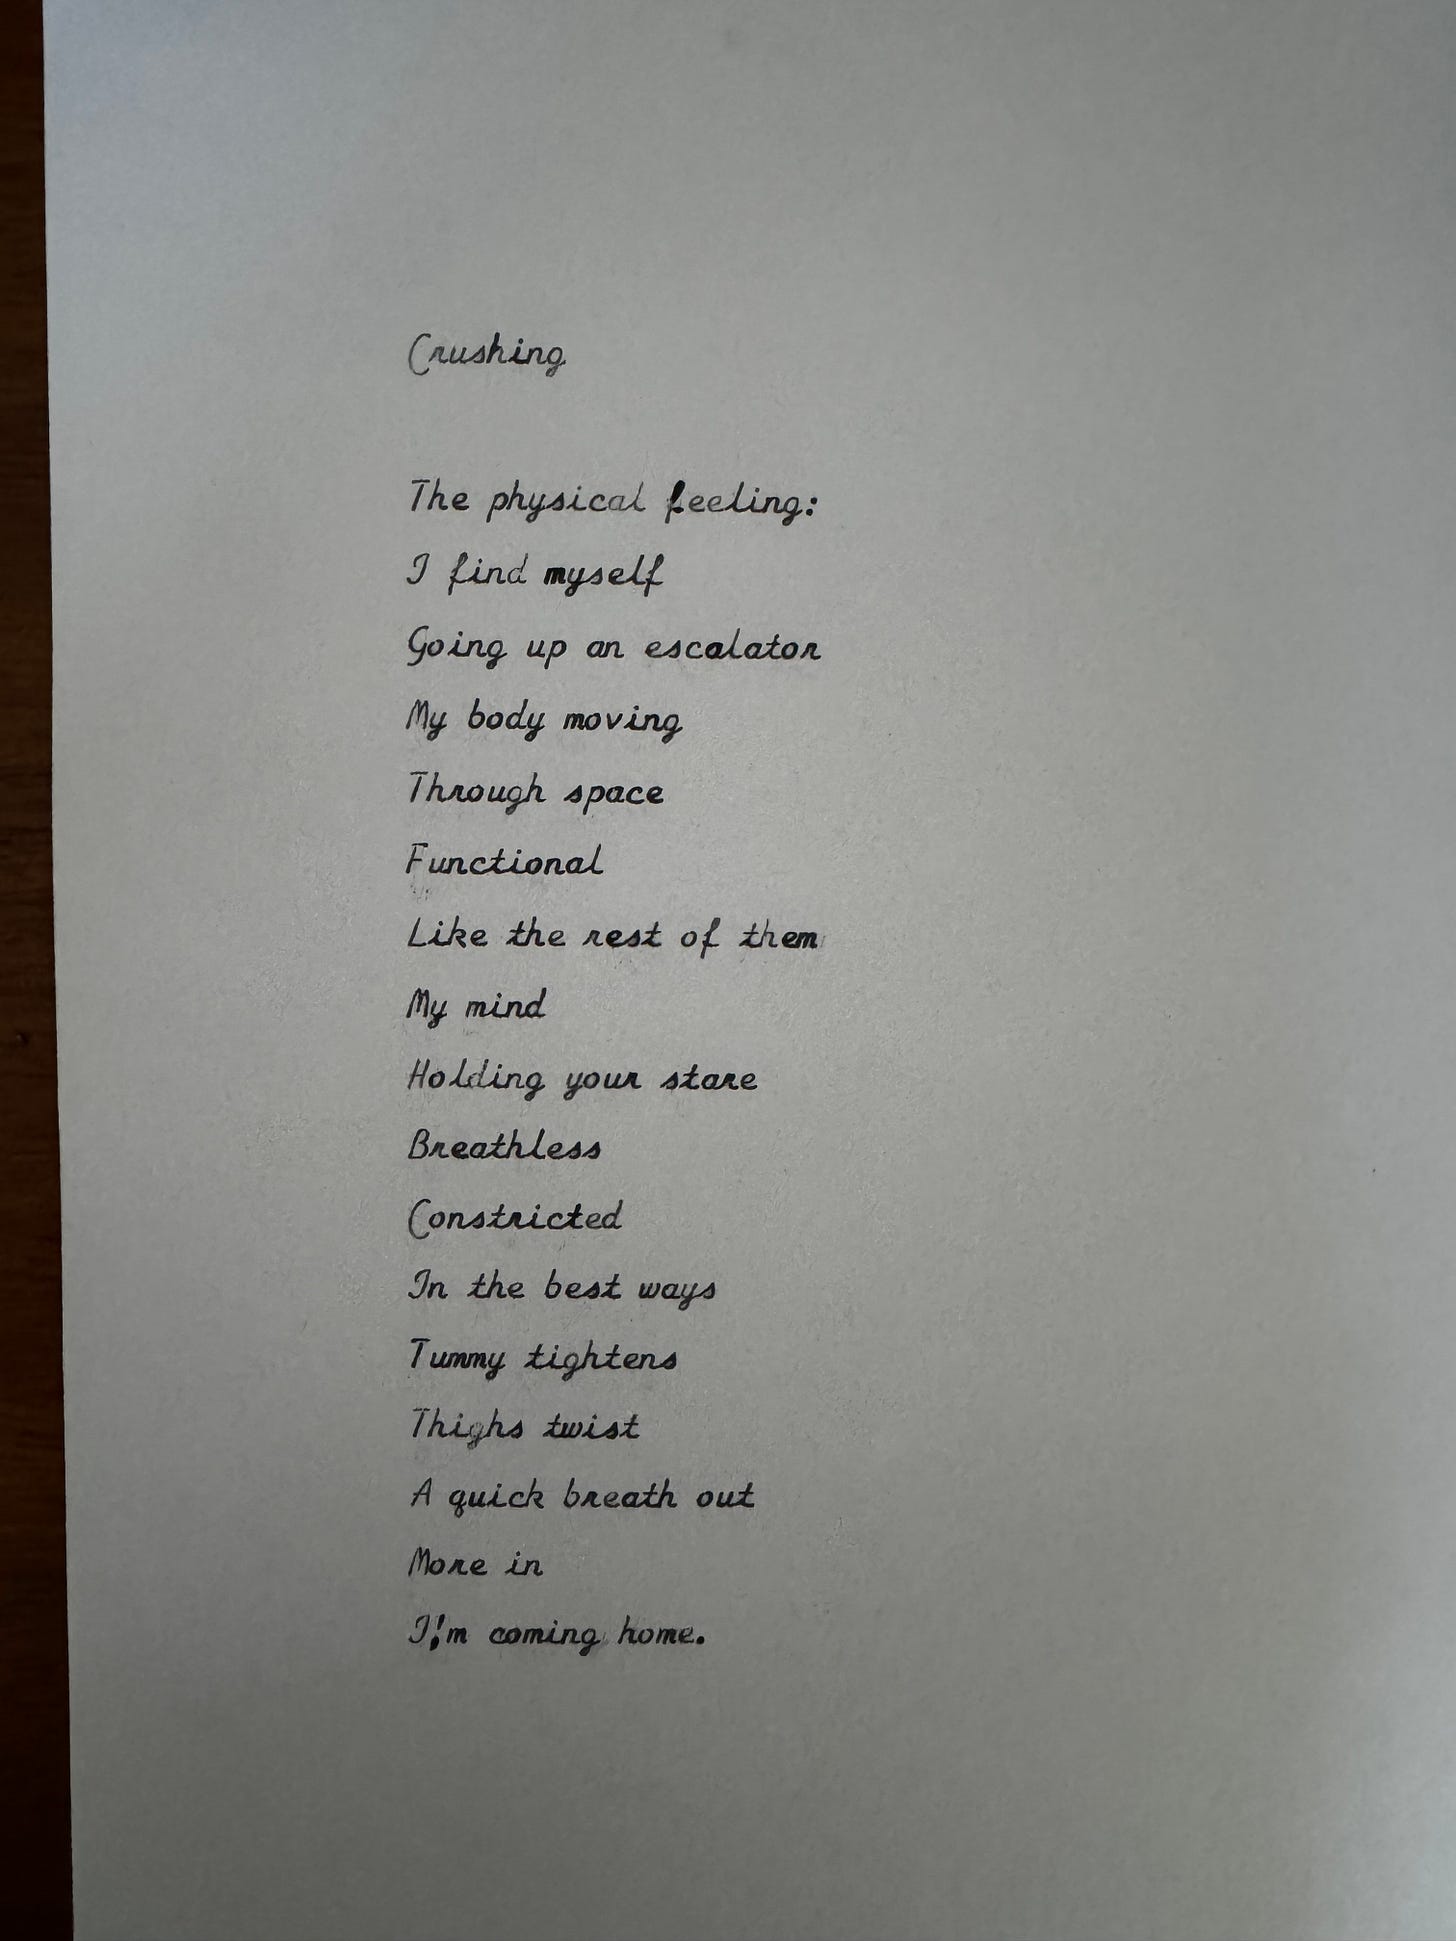 Crushing
The physical feeling:
I find myself
Going up an escalator
My body moving
Through space
Functional
Like the rest of them
My mind
Holding your stare
Breathless
Constricted
In the best ways
Tummy tightens
Thighs twist
A quick breath out
More in
I'm coming home.